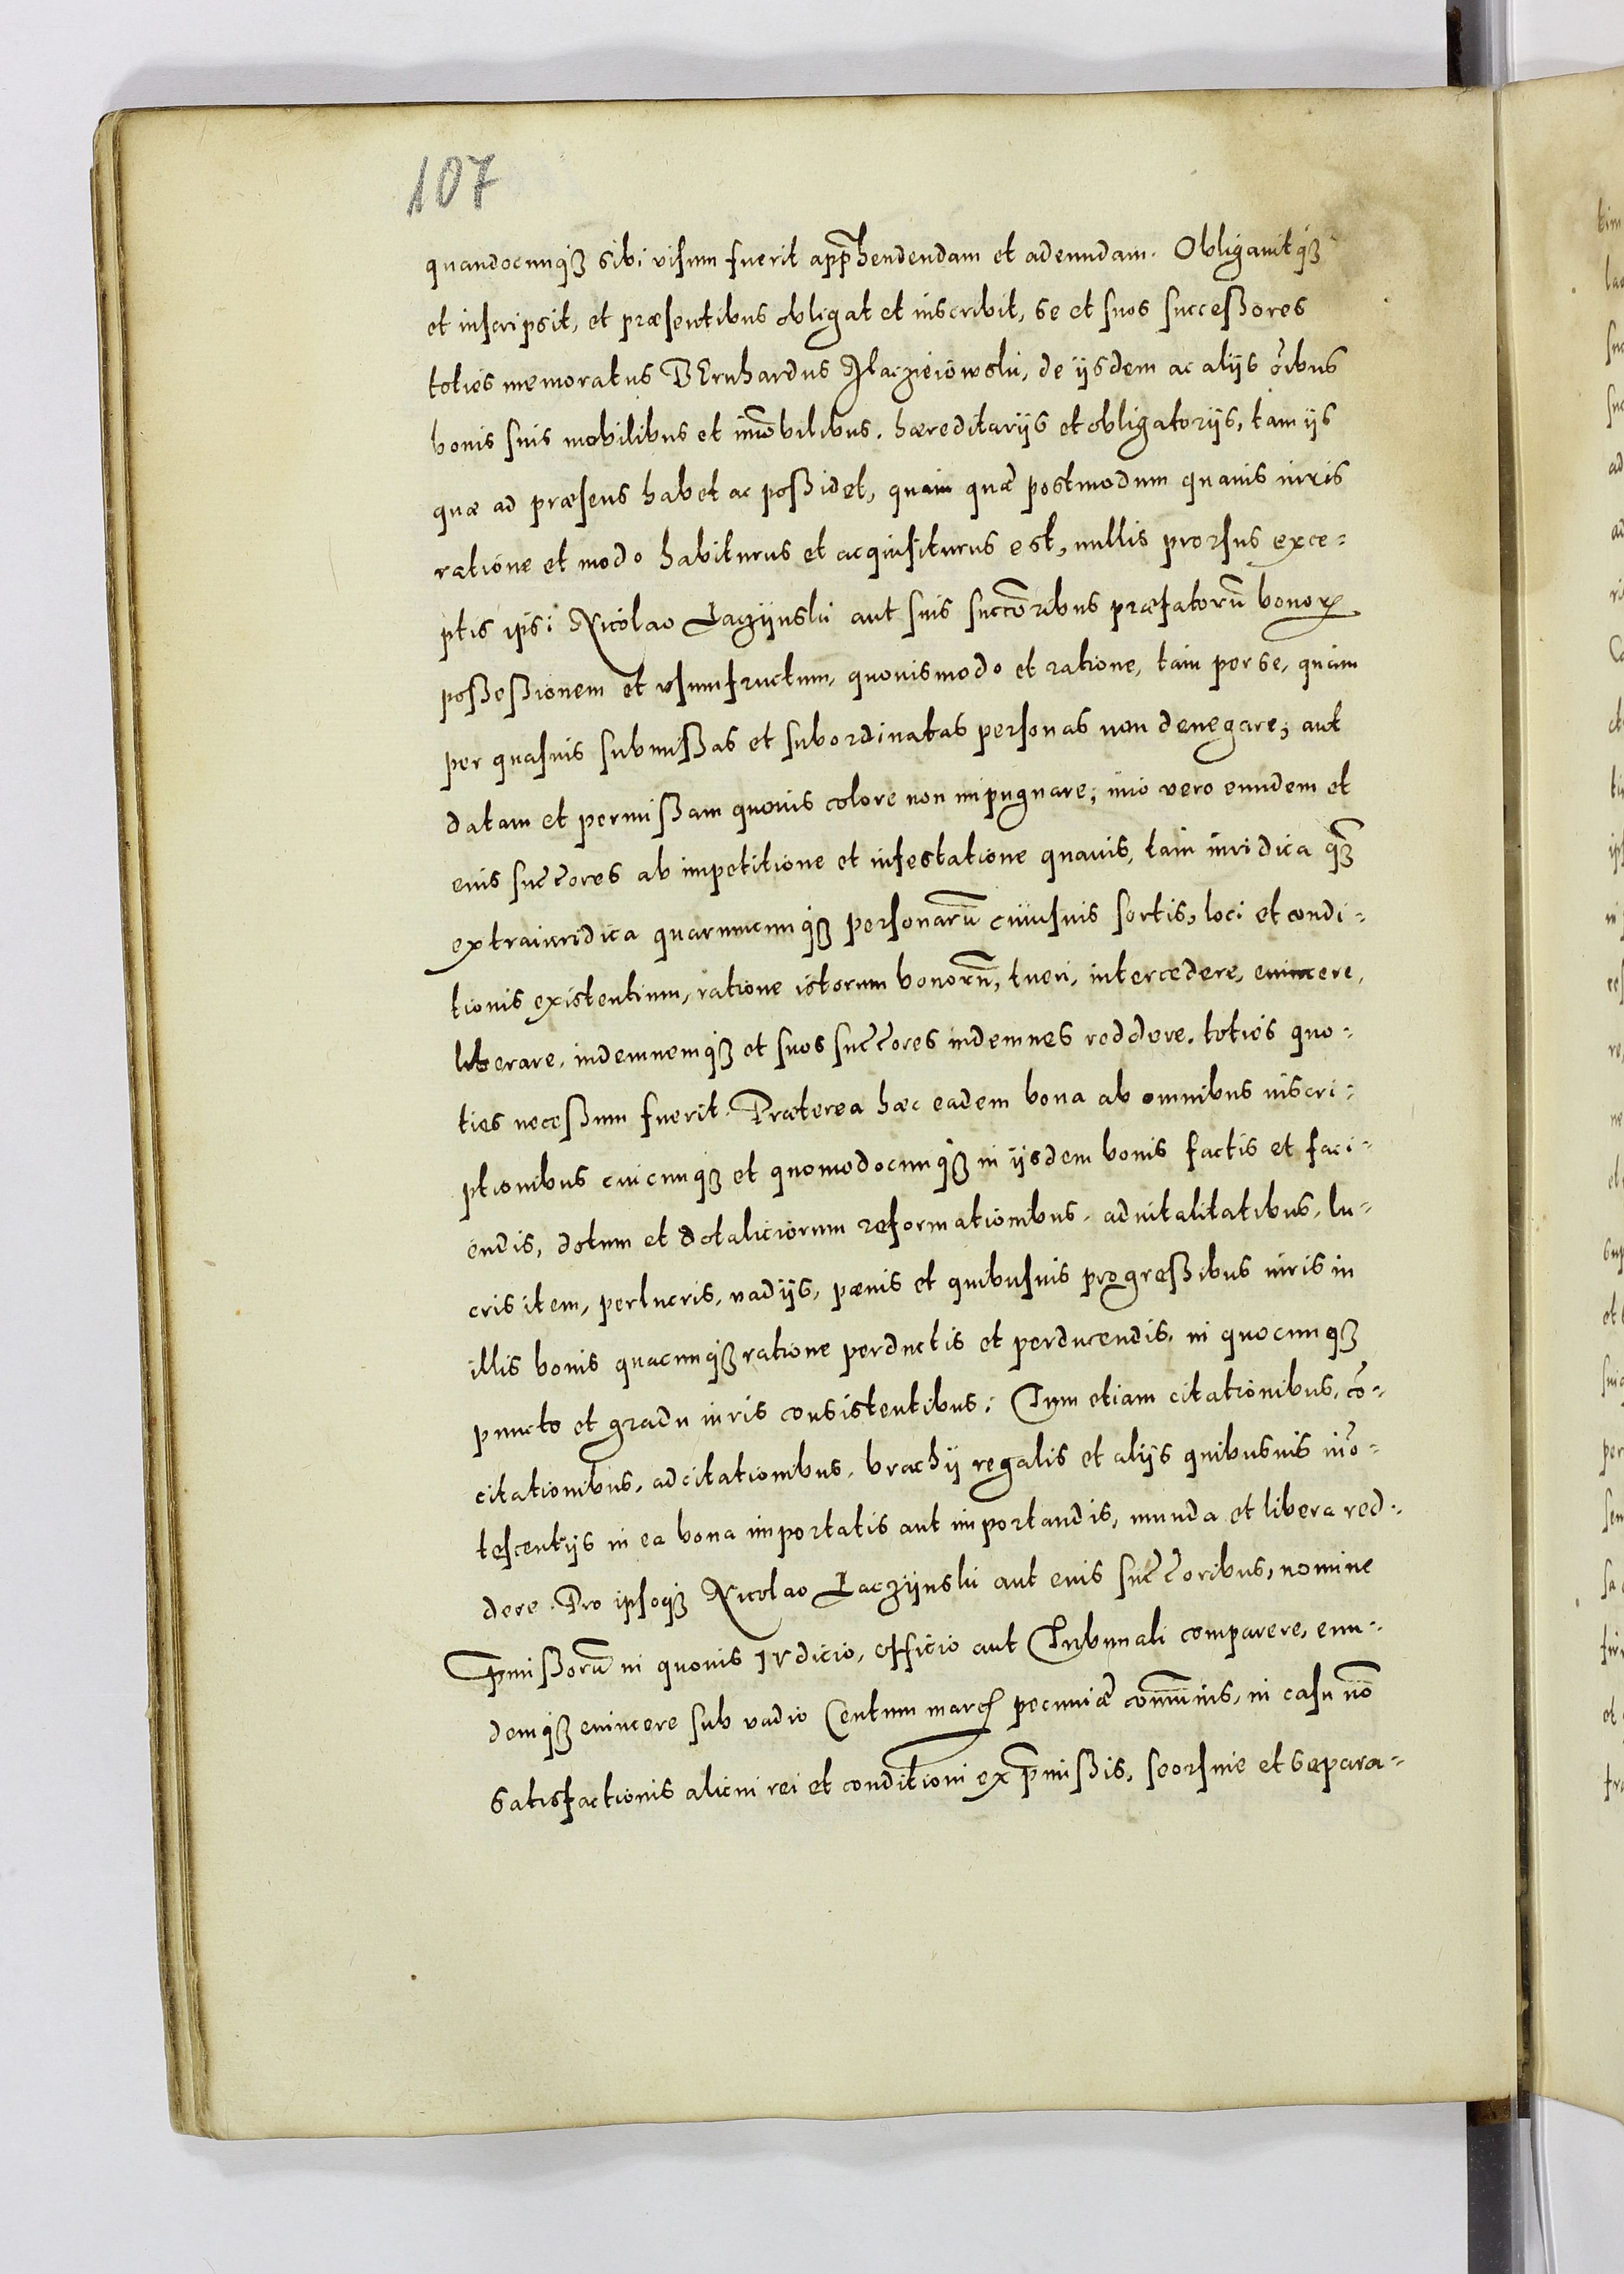 107
quandocunq₃ sibi visum fuerit app̄hendendam et adeundam. Obligauitq₃
et inscripsit, et præsentibus obligat et inscribit, se et suos successores
toties memoratus BErnhardus de ijsdem ac alijs oībus
bonis suis mobilibus et im̄obilibus, hæreditarijs et obligatorijs, tam ijs
quæ ad præsens habet ac possidet, quam quæ postmodum quauis iuris
ratione et modo habiturus et acquisiturus est, nullis prorsus exce-
ptis ipsi Nicolao Laczijnski aut suis succ̄oribus præfatorū bonoꝝ
possessionem et vsumfructum, quouismodo et ratione, tam per se, quam
per quasuis submissas et subordinatas personas non denegare; aut
datam et permissam quouis colore non impugnare; imo vero eundem et
eius succ̄ores ab impetitione et infestatione quauis, tam iuridica q̄₃
extraiuridica quarumcunq₃ personarū cuiusuis sortis, loci et condi-
tionis existentium, ratione istorum bonorū, tueri, intercedere, euincere,
liberare, indemnemq₃ et suos succ̄ores indemnes reddere, toties quo-
ties necessum fuerit. Præterea hæc eadem bona ab omnibus inscri-
ptionibus cuicunq₃ et quomodocunq₃ in ijsdem bonis factis et faci-
endis, dotum et dotaliciorum reformationibus, aduitalitatibus, lu-
cris item, perlucris, vadijs, pænis et quibusuis progressibus iuris in
illis bonis quacunq₃ ratione perductis et perducendis, in quocunq₃
puncto et gradu iuris consistentibus; Tum etiam citationibus, cō-
citationibus, adcitationibus, brachij regalis et alijs quibusuis in̄o-
tescentijs in ea bona importatis aut importandis, munda et libera red-
dere. Pro ipsoq₃ Nicolao Laczijnski aut eius succ̄oribus, nomine
p̄missorū in quouis IVdicio, officio aut Tribunali comparere, eun-
demq₃ euincere sub vadio Centum marcꝭ pecuniæ com̄unis, in casu nō
satisfactionis alicui rei et conditioni ex p̄missis, seorsiue et separa-